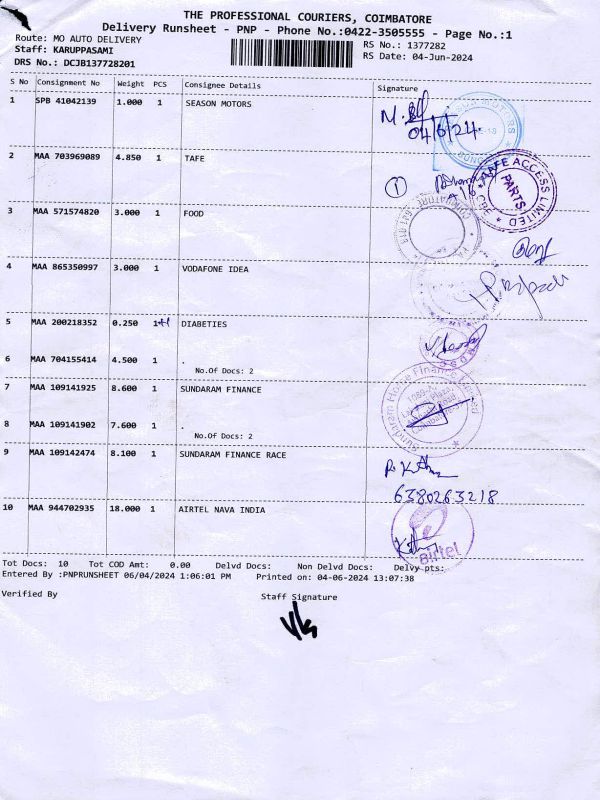 THE PROFESSIONAL COURIERS, COIMBATORE
Delivery Runsheet - PNP - Phone No.:0422-3505555 - Page No.:1
Route: MO AUTO DELIVERY
RS No.: 1377282
Staff: KARUPPASAMI
RS Date: 04-Jun-2024
DRS No.: DCJB137728201
S No Consignment No Weight PCS Consignee Details Signature
1 SPB 41042139 1.000 1 SEASON MOTORS
04/6/24
2 MAA 703969089 4.850 1 TAFE
1
TAFE ACCESS LIMITED
PARTS
CBE
3 MAA 571574820 3.000 1 FOOD
4 MAA 865350997 3.000 1 VODAFONE IDEA
5 MAA 200218352 0.250 1+1 DIABETIES
6 MAA 704155414 4.500 1 .
No.Of Docs: 2
7 MAA 109141925 8.600 1 SUNDARAM FINANCE
Sundaram Home Finance Limited
8 MAA 109141902 7.600 1 .
No.Of Docs: 2
9 MAA 109142474 8.100 1 SUNDARAM FINANCE RACE
6380263218
10 MAA 944702935 18.000 1 AIRTEL NAVA INDIA
airtel
Tot Docs: 10 Tot COD Amt: 0.00 Delvd Docs: Non Delvd Docs: Delvy pts:
Entered By :PNPRUNSHEET 06/04/2024 1:06:01 PM Printed on: 04-06-2024 13:07:38
Verified By Staff Signature